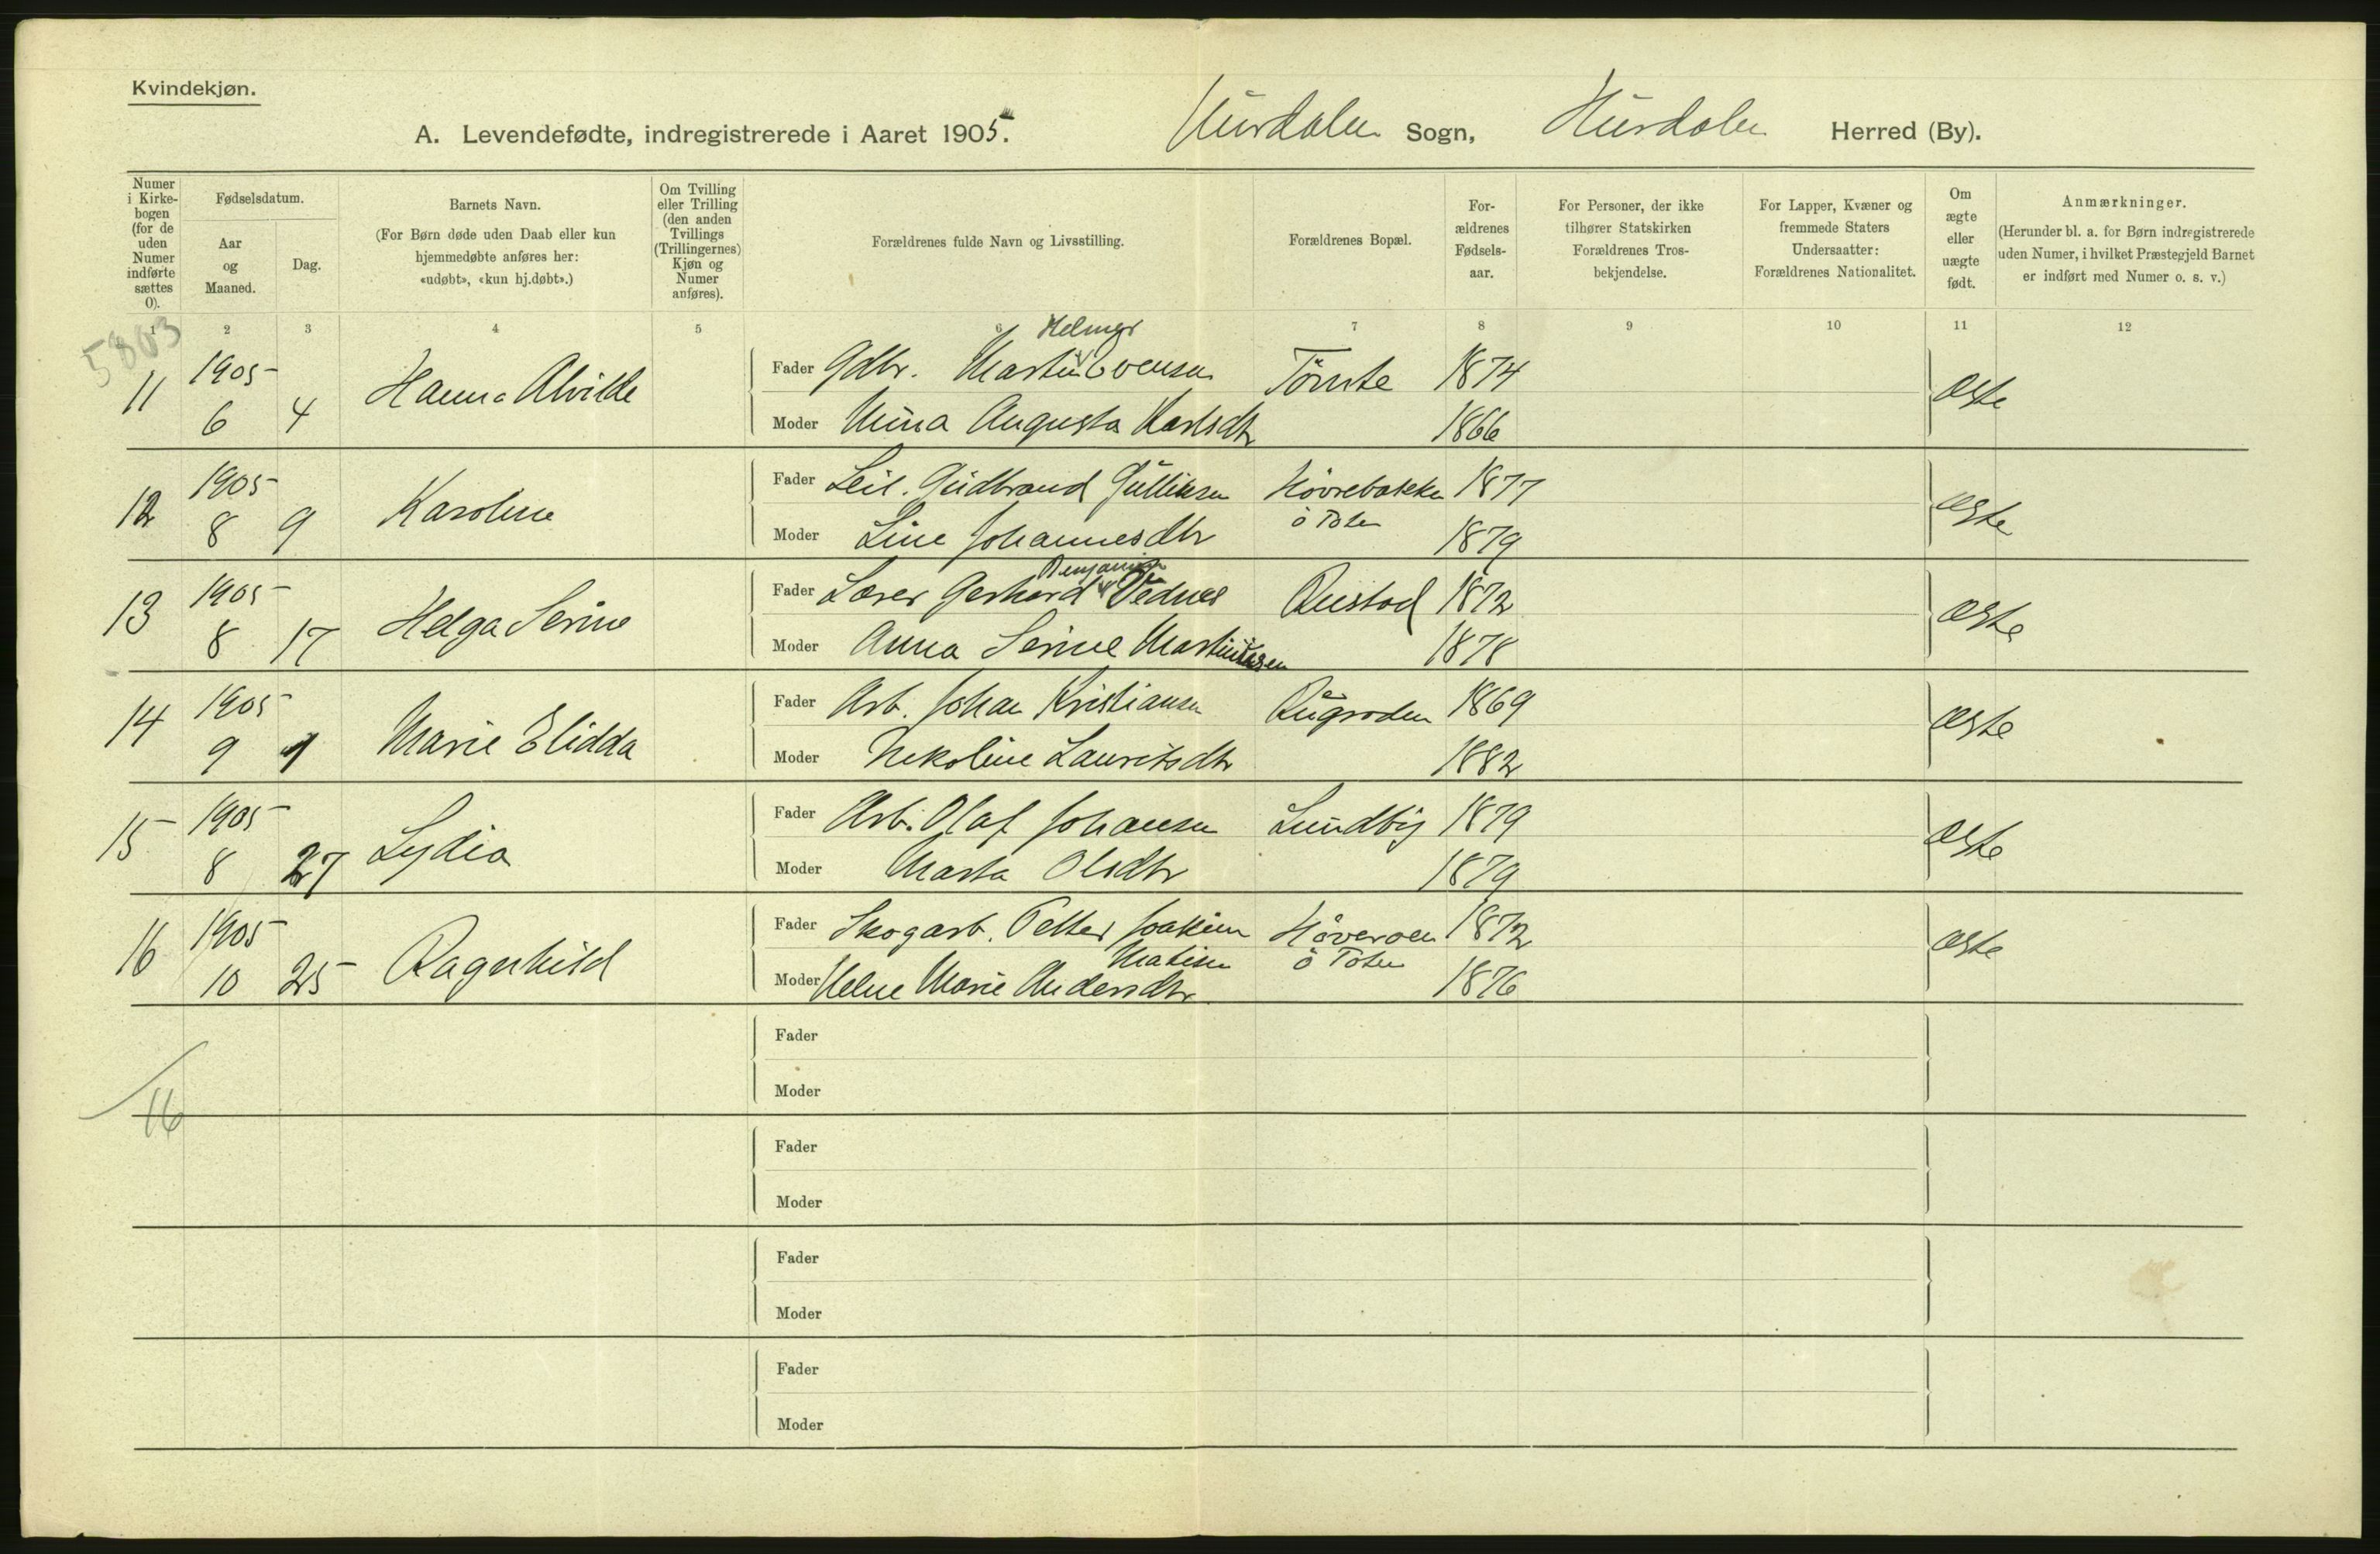 Kvindekjøn.
A. Levendefødte, indregistrerede i Aaret 1905. Hurdalen Sogn, Hurdalen Herred (By).
Numer i Kirkebogen (for de uden Numer indførte sættes 0).
Fødselsdatum.
Aar og Maaned.
Dag.
Barnets Navn.
(For Børn døde uden Daab eller kun hjemmedøbte anføres her: «udøbt», «kun hj.døbt».)
Om Tvilling eller Trilling (den anden Tvillings (Trillingernes) Kjøn og Numer anføres).
Forældrenes fulde Navn og Livsstilling.
Forældrenes Bopæl.
Forældrenes Fødselsaar.
For Personer, der ikke tilhører Statskirken Forældrenes Trosbekjendelse.
For Lapper, Kvæner og fremmede Staters Undersaatter: Forældrenes Nationalitet.
Om ægte eller uægte født.
Anmærkninger.
(Herunder bl. a. for Børn indregistrerede uden Numer, i hvilket Præstegjeld Barnet er indført med Numer o. s. v.)
1 2 3 4 5 6 7 8 9 10 11 12
5803
11 1905 6 4 Hanna Alvilde
Fader Gdbr. Martin Helmer Evensen 1874
Moder Mina Augusta Karlsdtr 1866
ægte
12 1905 8 9 Karoline
Fader Leil. Gudbrand Gulliksen Høvrebakken 1877
Moder Line Johannesdtr ø Toten 1879
ægte
13 1905 8 17 Helga Serine
Fader Lærer Gerhard Benjamin Vednes Rustad 1872
Moder Anna Serine Martinusen 1878
ægte
14 1905 9 1 Marie Elidda
Fader Arb. Johan Kristiansen Rugroden 1869
Moder Nekoline Lauritsdtr 1882
ægte
15 1905 8 27 Lydia
Fader Arb. Olaf Johansen Lundby 1879
Moder Marta Olsdtr 1879
ægte
16 1905 10 25 Ragnhild
Fader Skogarb. Petter Joakim Matisen Høveroen 1872
Moder Helene Marie Andersdtr ø Toten 1876
ægte
Fader
Moder
16
Fader
Moder
Fader
Moder
Fader
Moder